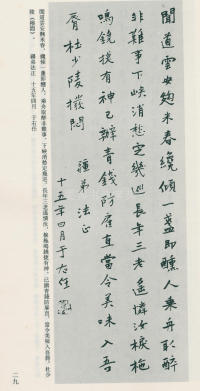 聞道雲安麴米春纔傾一盞即醺人乘舟取醉
非難事下峽消愁定幾巡長年三老遙憐汝捩柁
鳴鐃捷有神已辦青錢防雇直當令美味入吾
脣杜少陵撥悶 疆弟法正
十五年四月于右任
聞道雲安麴米春,纔傾一盞即醺人,乘舟取醉非難事,下峽消愁定幾巡。長年三老遙憐汝,捩柁鳴鐃捷有神,已辦青錢防雇直,當令美味入吾脣。杜少
陵《撥悶》。 疆弟法正 十五年四月 于右任
二九